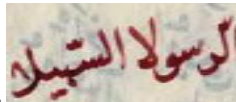 الرسولا السبيلا